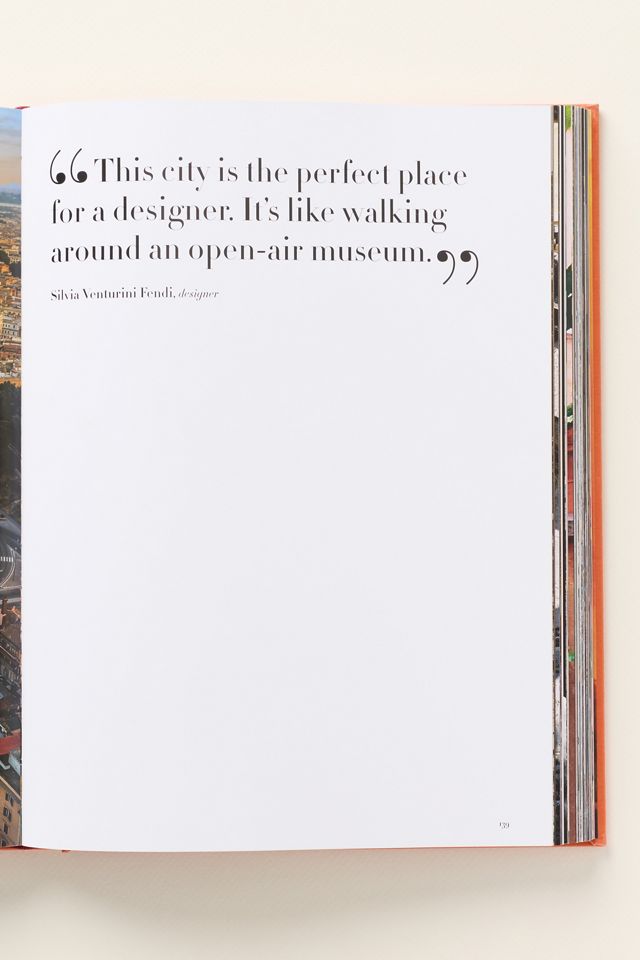 “This city is the perfect place
for a designer. It’s like walking
around an open-air museum.”
Silvia Venturini Fendi, designer
139